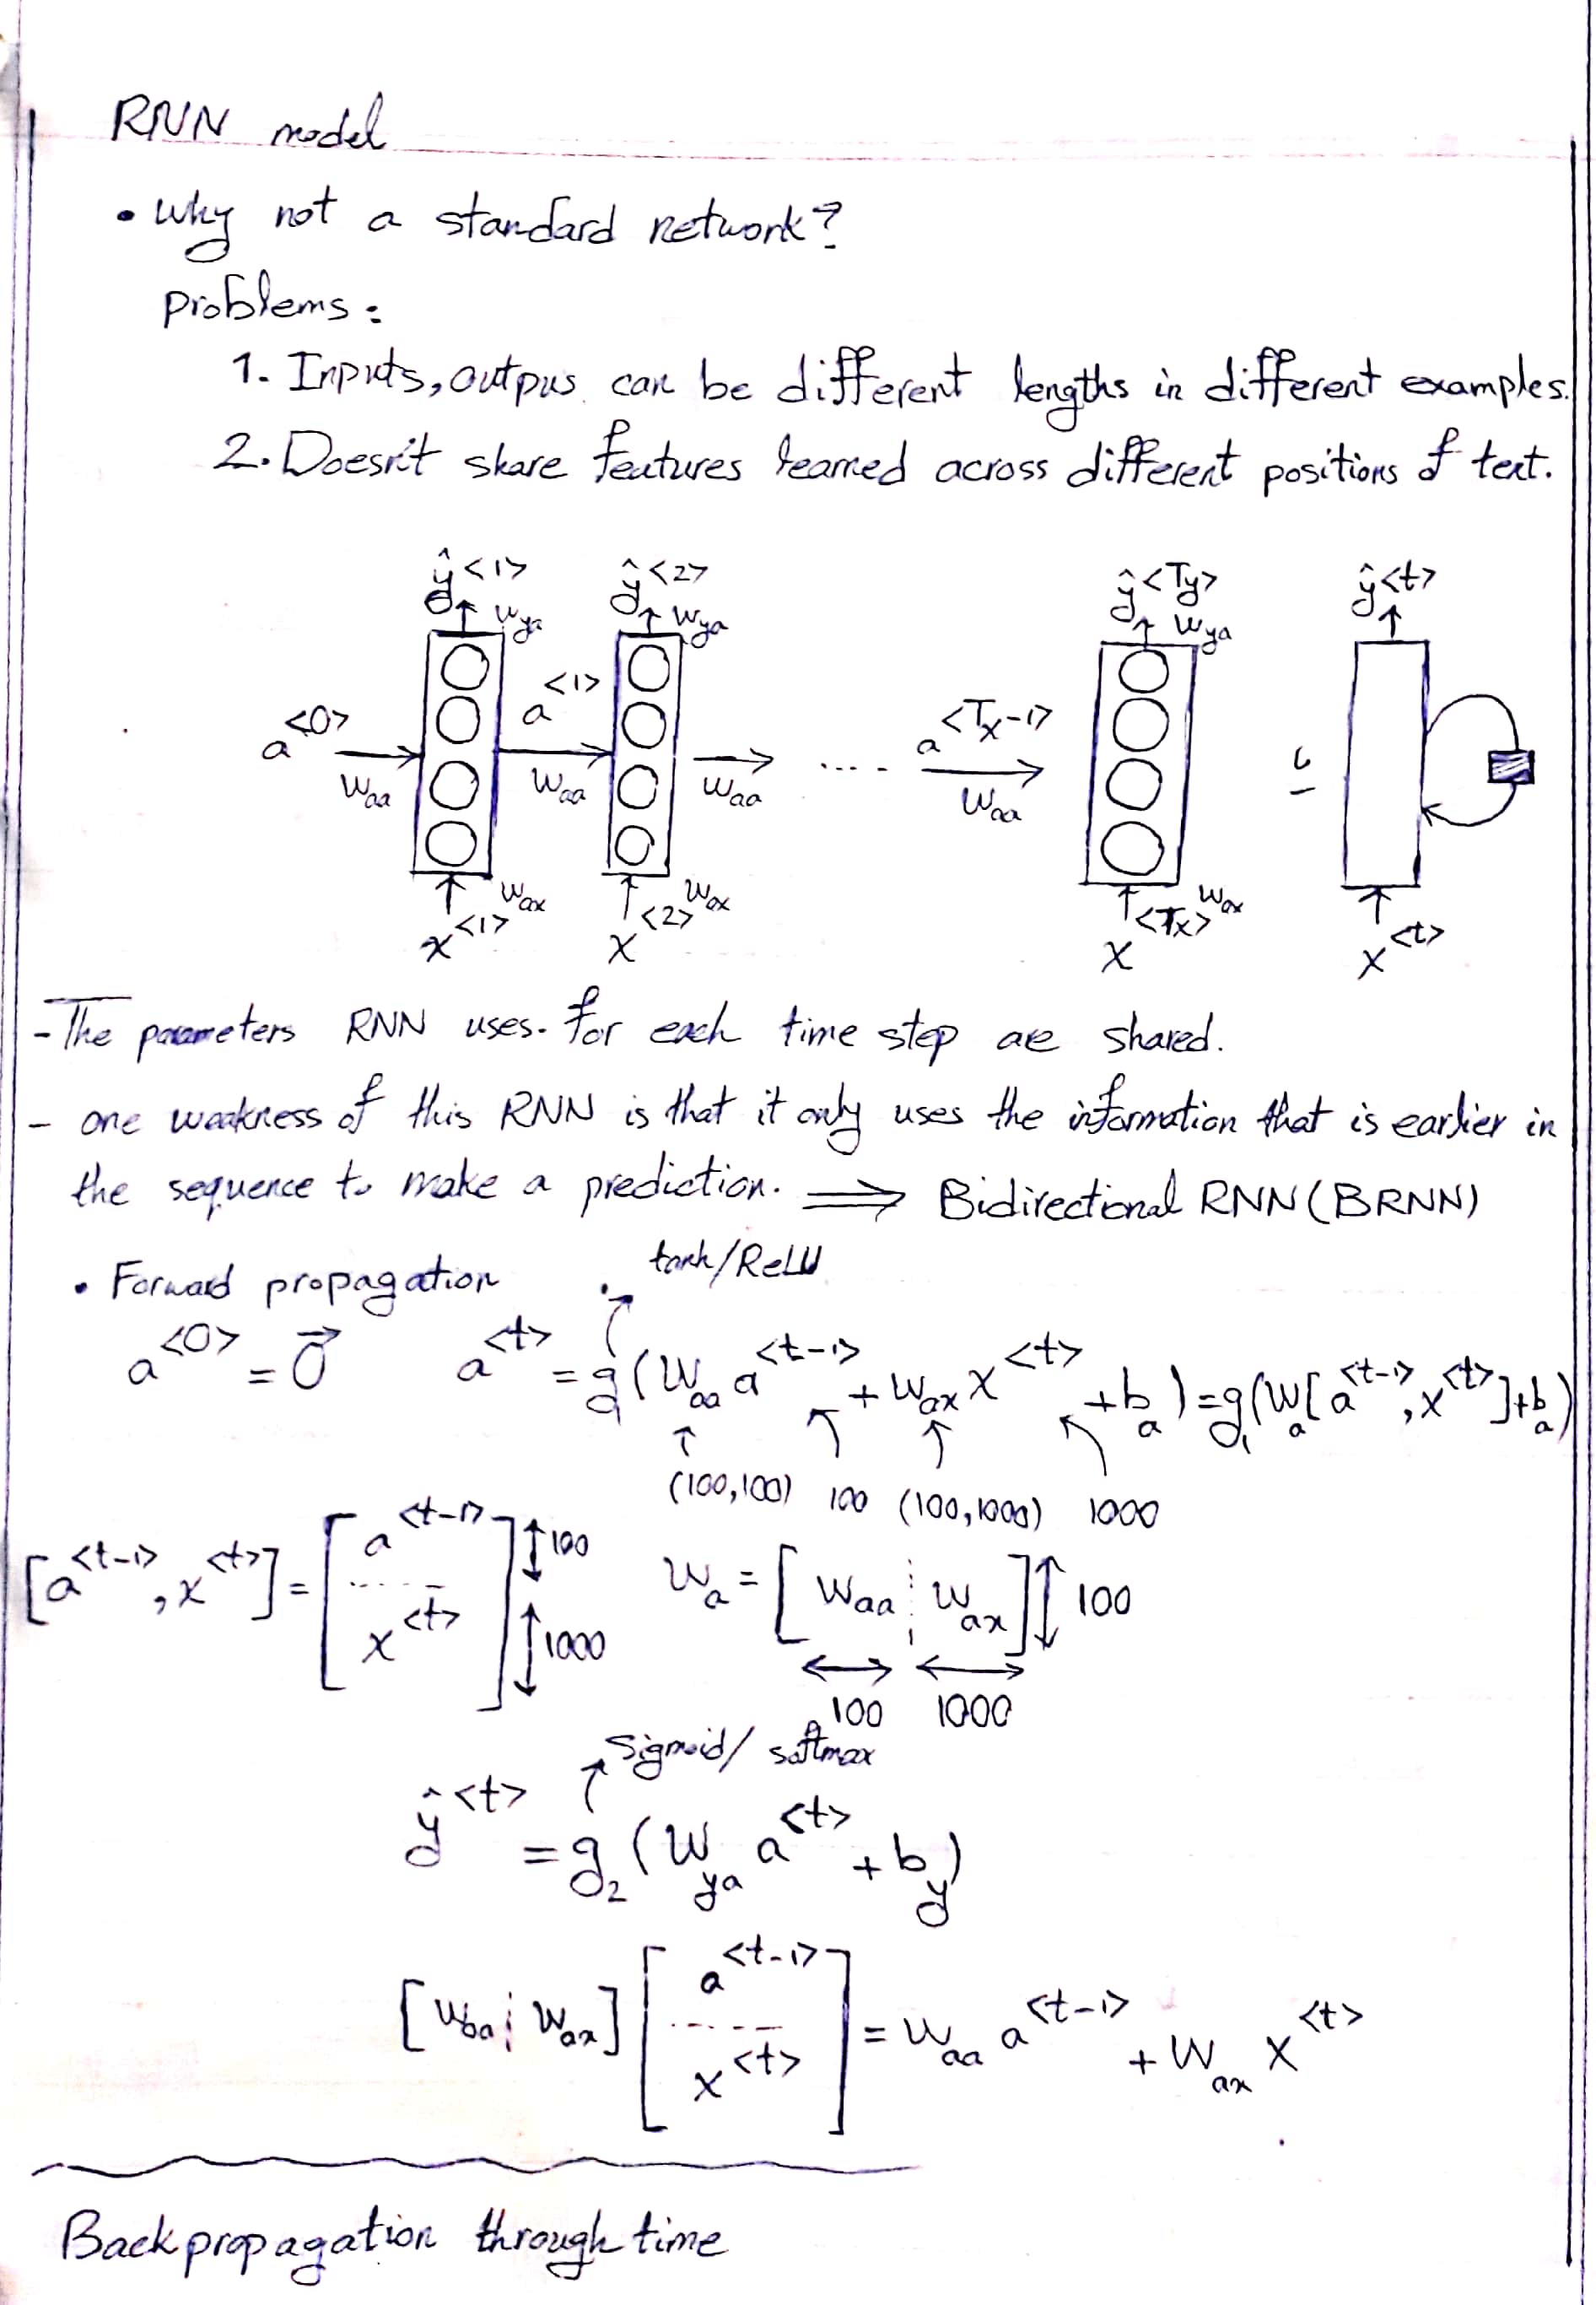 RNN model
• Why not a standard network?
Problems:
1. Inputs, outpus can be different lengths in different examples.
2. Doesn't share features learned across different positions of text.
ŷ<1> ŷ<2> ŷ<Ty> ŷ<t>
Wya Wya Wya
a<0> a<1> a<Tx-1>
Waa Waa Waa .... Waa
Wax Wax Wax
x<1> x<2> x<Tx> x<t>
- The parameters RNN uses for each time step are shared.
- one weakness of this RNN is that it only uses the information that is earlier in
the sequence to make a prediction. ⟹ Bidirectional RNN (BRNN)
tanh/ReLU
• Forward propagation
a<0> = 0⃗ a<t> = g₁(Waa a<t-1> + Wax x<t> + ba) = g₁(Wa[a<t-1>, x<t>] + ba)
(100,100) 100 (100,1000) 1000
[a<t-1>, x<t>] = [a<t-1> ----- x<t>] 100 1000 Wa = [Waa ⋮ Wax] 100
100 1000
Sigmoid/ softmax
ŷ<t> = g₂(Wya a<t> + by)
[Waa ⋮ Wax] [a<t-1> ----- x<t>] = Waa a<t-1> + Wax x<t>
Backpropagation through time